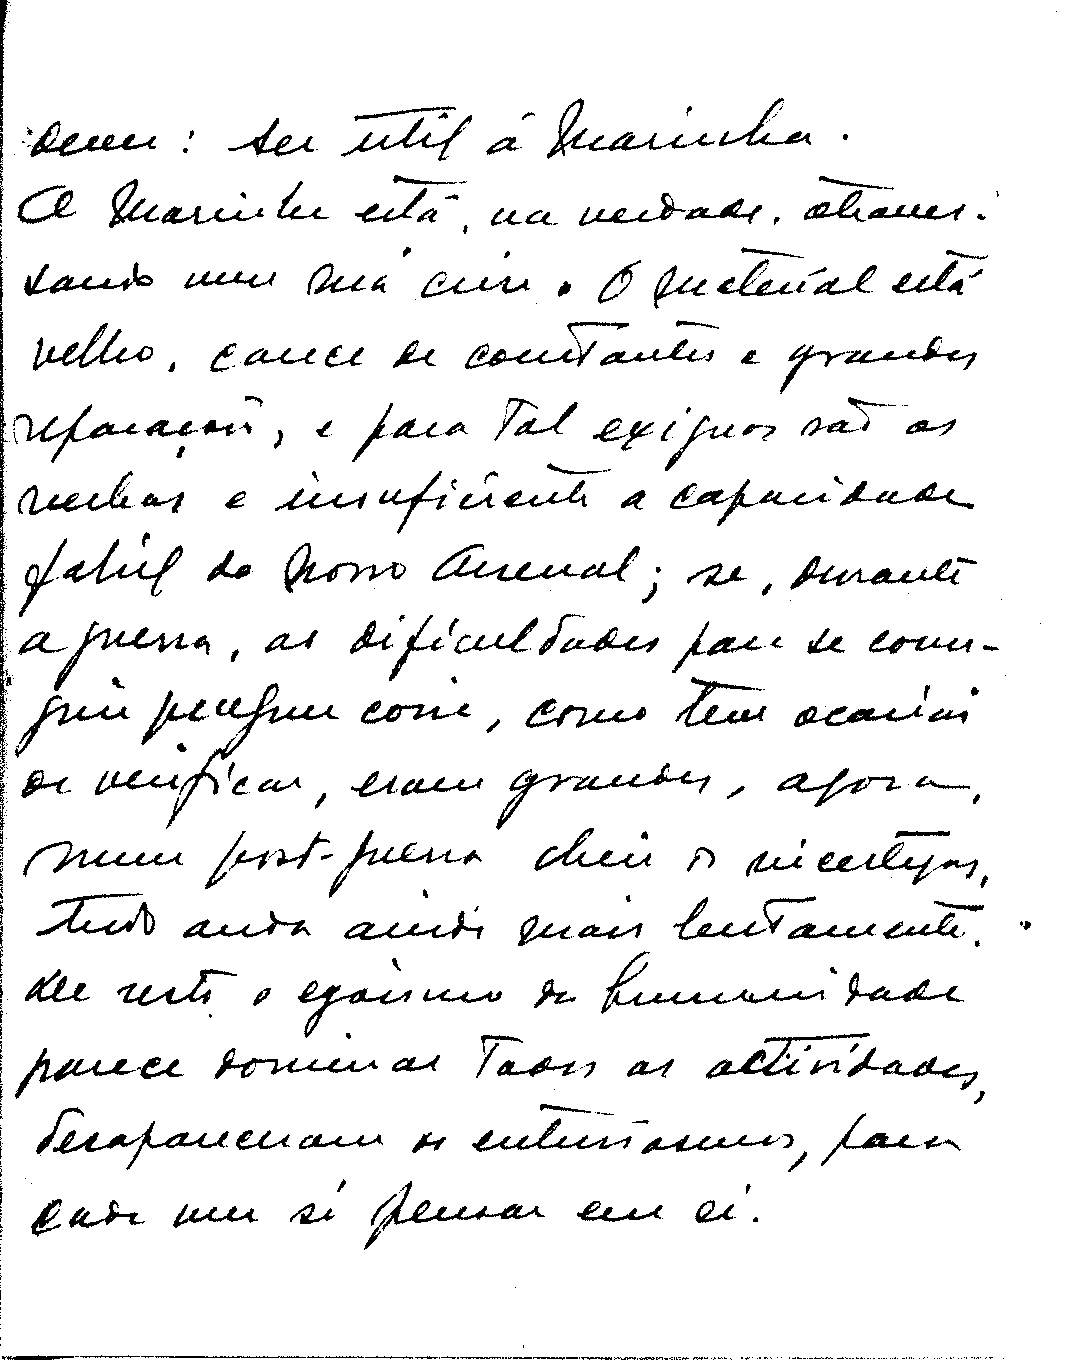 dem: ser util á Marinha.
A Marinha está, na verdade, atraves-
sando uma má crise. O material está
velho, cance de constantes e grandes
reparações, e para tal exiguas são as
verbas e insuficiente a capacidade
fabril do Nosso Arsenal; se, durante
a guerra, as dificuldades para se conse-
guir qualquer coisa, como tem ocasião
de verificar, eram grandes, agora,
num post-guerra cheio de incertezas,
tudo anda ainda mais lentamente.
De resto o egoismo da humanidade
parece dominar todas as actividades,
desapareceram os entusiasmos, para
cada um si pensar em si.